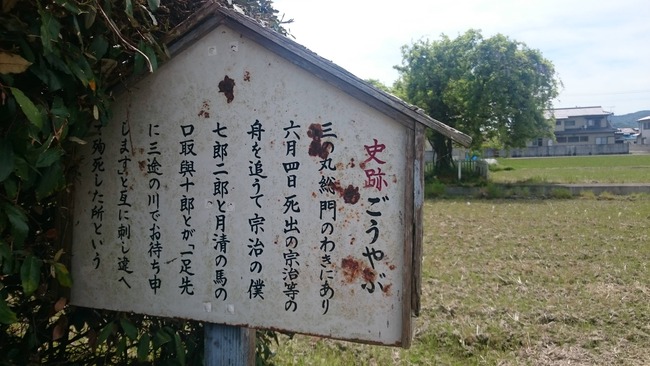 史跡 ごうやぶ
三の丸総門のわきにあり
六月四日死出の宗治等の
舟を追うて宗治の僕
七郎二郎と月清の馬の
口取與十郎とが「一足先
に三途の川でお待ち申
しますと互に刺し違へ
殉死した所という